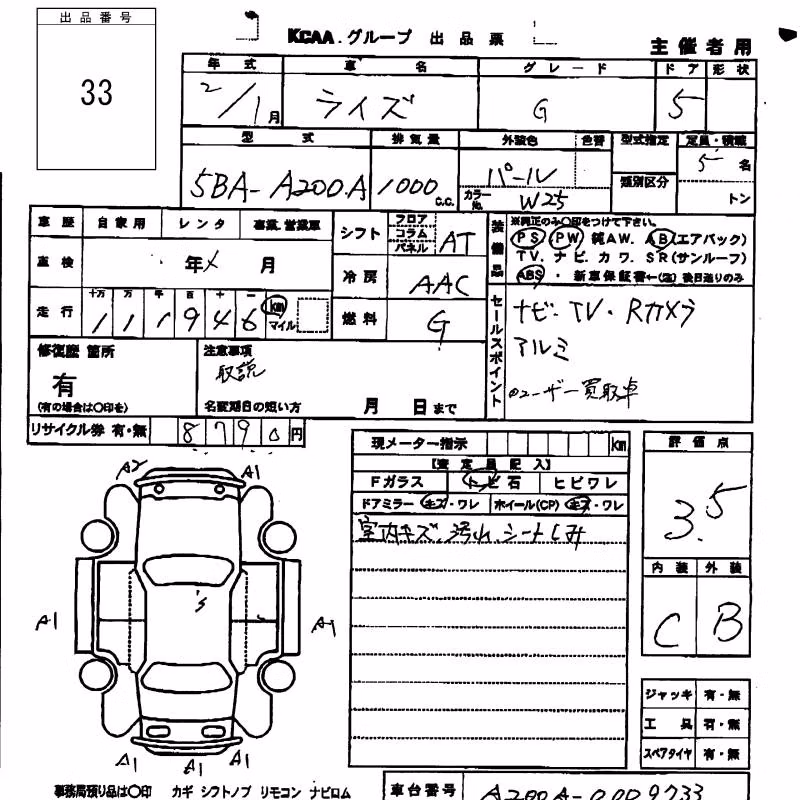 出品番号
33
KCAA.グループ 出品票
主催者用
年式 車名 グレード ドア 形状
2/1月 ライズ G 5
型式 排気量 外装色 色替 型式指定 定員・積載
5BA-A200A 1000 c.c. パール カラーNo. W25 類別区分 5名 トン
車歴 自家用 レンタ 事業.営業車
車検 年 月
走行 十万 万 千 百 十 一
111946 km マイル
シフト フロア コラム パネル AT
冷房 AAC
燃料 G
装備品 ※純正のみ○印をつけて下さい。
PS PW 純AW. AB(エアバック)
TV. ナビ. カワ. SR(サンルーフ)
ABS ・ 新車保証書←(迄)後日送りのみ
セールスポイント
ナビ・TV・Rカメラ
アルミ
ユーザー買取車
修復歴 箇所
有
(有の場合は○印を)
注意事項
取説
名変期日の短い方 月 日まで
リサイクル券 有・無 8790円
現メーター指示 km
【査定員記入】
Fガラス トビ石 ヒビワレ
ドアミラー キズ・ワレ ホイール(CP) キズ・ワレ
室内キズ.汚れ.シートしみ
評価点
3.5
内装 外装
C B
A2 A1
A1 A1
A1 A1 A1
ジャッキ 有・無
工具 有・無
スペアタイヤ 有・無
事務局預り品は○印 カギ シフトノブ リモコン ナビロム
車台番号 A200A-0009733